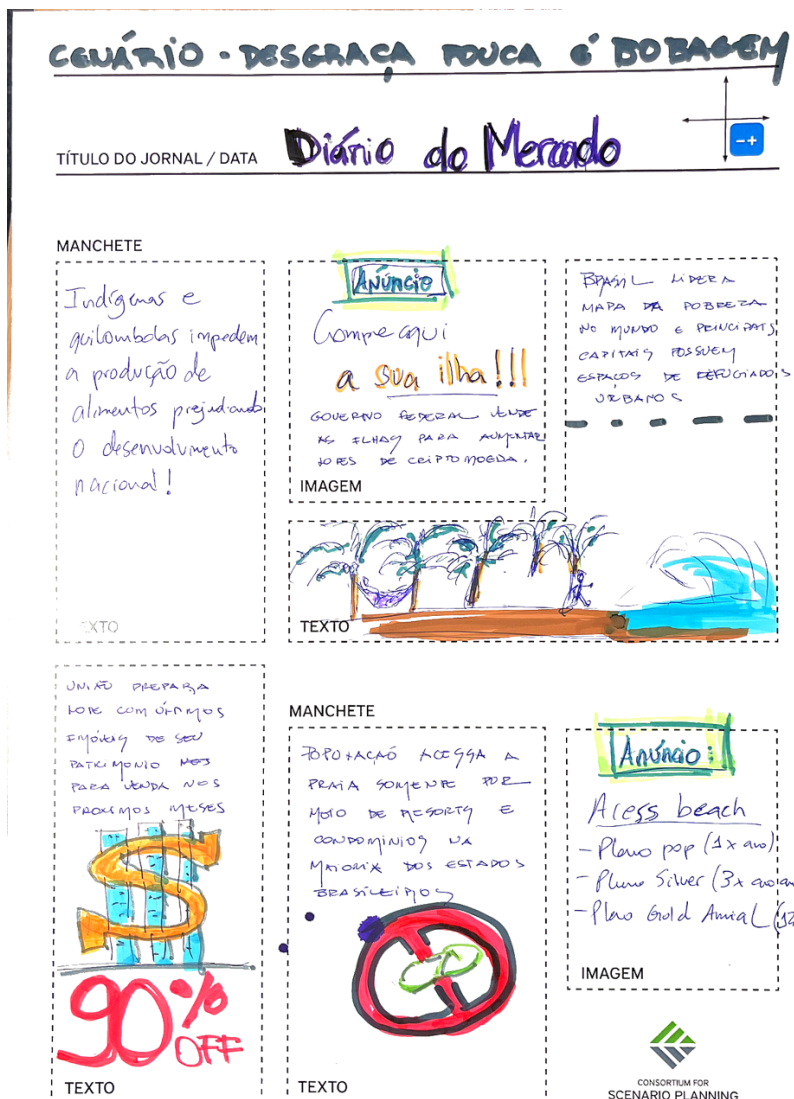 CENÁRIO - DESGRAÇA POUCA é BOBAGEM
TÍTULO DO JORNAL / DATA
Diário do Mercado
-+
MANCHETE
Indígenas e
quilombolas impedem
a produção de
alimentos prejudicando
O desenvolvimento
nacional!
TEXTO
Anúncio
Compre aqui
a sua ilha!!!
GOVERNO FEDERAL VENDE
AS ILHAS PARA AUMENTAR
LOTES DE CRIPTOMOEDA.
IMAGEM
BRASIL LIDERA
MAPA DA POBREZA
NO MUNDO E PRINCIPAIS
CAPITAIS POSSUEM
ESPAÇOS DE REFUGIADOS
URBANOS
TEXTO
UNIÃO PREPARA
LOTE COM ÚLTIMOS
IMÓVEIS DE SEU
PATRIMONIO
PARA VENDA NOS
PROXIMOS MESES
90% OFF
TEXTO
MANCHETE
POPULAÇAÕ ACESSA A
PRAIA SOMENTE POR
MEIO DE RESORTS E
CONDOMINIOS NA
MAIORIA DOS ESTADOS
BRASILEIROS
TEXTO
Anúncio:
Acess beach
- Plano pop (1x ano)
- Plano Silver (3x
- Plano Gold
IMAGEM
CONSORTIUM FOR
SCENARIO PLANNING